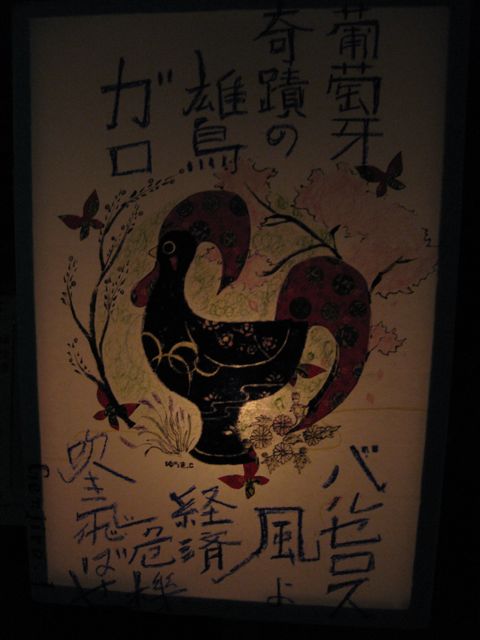 葡萄牙
奇蹟の
雄鳥
ガロ
バルセロス
風よ
経済
危機
吹き飛ばせ